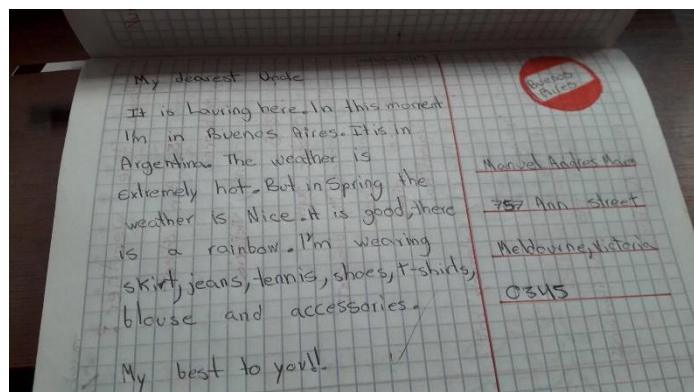 My dearest Uncle
It is Lauring here. In this moment
I'm in Buenos Aires. It is in
Argentina. The weather is
extremely hot. But in Spring the
weather is Nice. It is good, there
is a rainbow. I'm wearing
skirt, jeans, tennis, shoes, t-shirts,
blouse and accessories.
My best to you!!
Buenos
Aires
Manuel Andres
757 Ann street
Meldourne, Victoria
0345